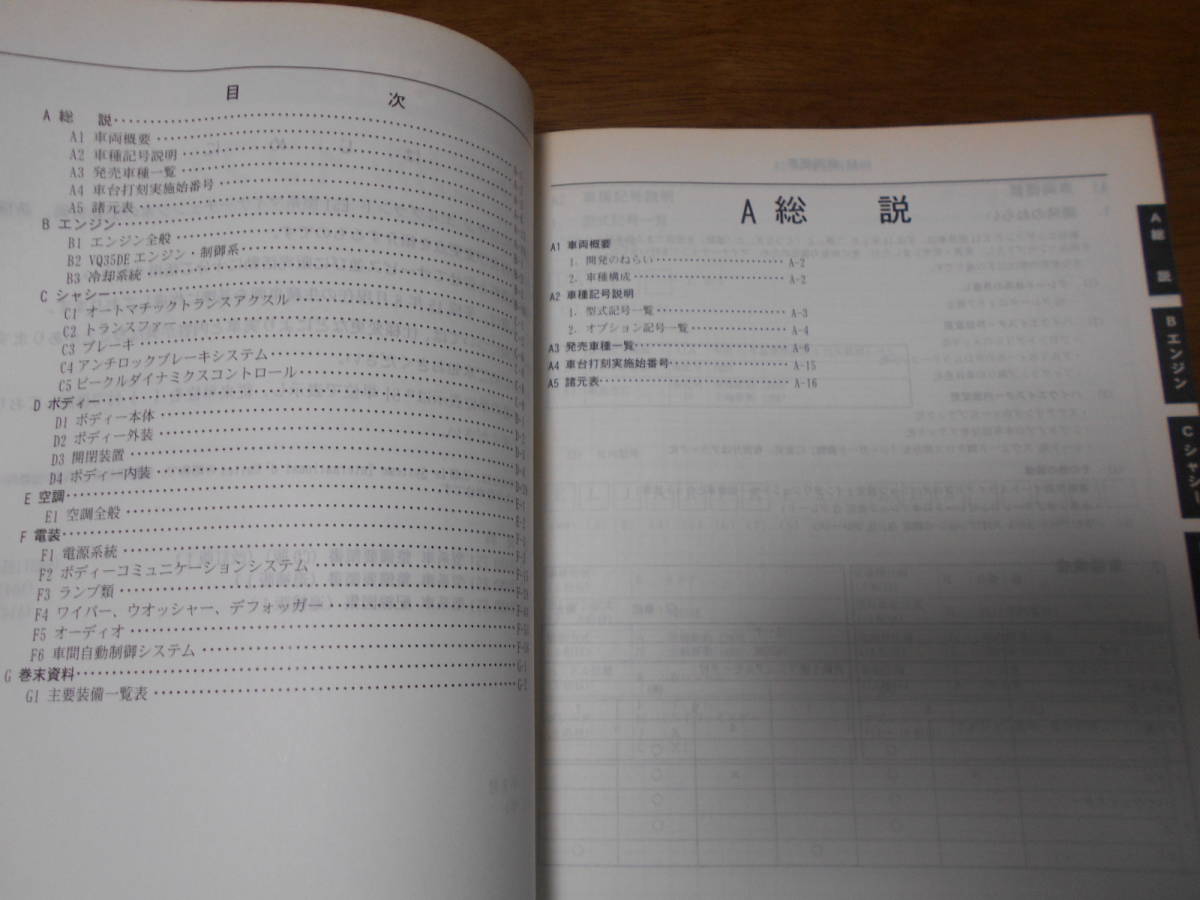 目　次
A 総　説
A1 車両概要
A2 車種記号説明
A3 発売車種一覧
A4 車台打刻実施始番号
A5 諸元表
B エンジン
B1 エンジン全般
B2 VQ35DEエンジン・制御系
B3 冷却系統
C シャシー
C1 オートマチックトランスアクスル
C2 トランスファ
C3 ブレーキ
C4 アンチロックブレーキシステム
C5 ビークルダイナミクスコントロール
D ボディー
D1 ボディー本体
D2 ボディー外装
D3 開閉装置
D4 ボディー内装
E 空調
E1 空調全般
F 電装
F1 電源系統
F2 ボディーコミュニケーションシステム
F3 ランプ類
F4 ワイパー、ウオッシャー、デフォッガー
F5 オーディオ
F6 車間自動制御システム
G 巻末資料 G-1
G1 主要装備一覧表 G-2
A 総　説
A1 車両概要
1. 開発のねらい A-2
2. 車種構成 A-2
A2 車種記号説明
1. 型式記号一覧 A-3
2. オプション記号一覧 A-4
A3 発売車種一覧 A-6
A4 車台打刻実施始番号 A-15
A5 諸元表 A-16
A 総　説
B エンジン
C シャシー